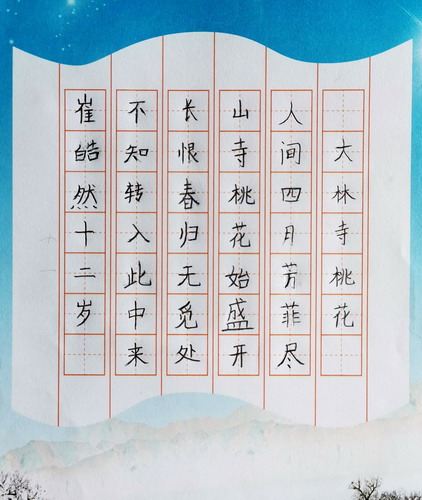 大林寺桃花
人间四月芳菲尽
山寺桃花始盛开
长恨春归无觅处
不知转入此中来
崔皓然十二岁